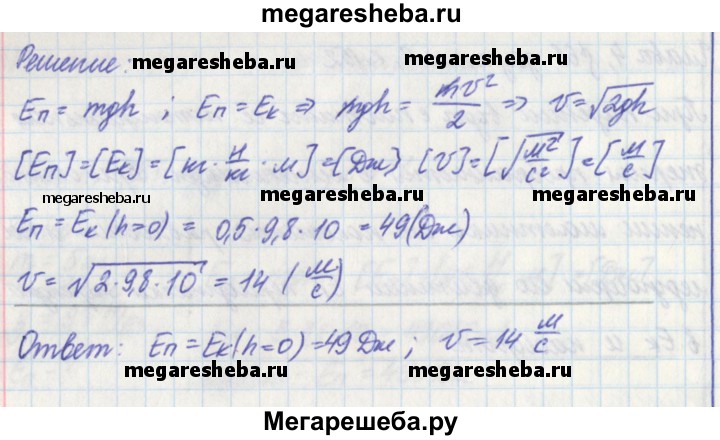 megaresheba.ru
Решение:
megaresheba.ru
Eп = mgh ; Eп = Eк ⇒ mgh = mv²/2 ⇒ v = √2gh
[Eп] = [Eк] = [кг · Н/кг · м] = (Дж) [v] = [√м²/с²] = [м/с]
megaresheba.ru megaresheba.ru
Eп = Eк (h=0) = 0,5 · 9,8 · 10 = 49 (Дж)
v = √2 · 9,8 · 10 = 14 (м/с)
Ответ: Eп = Eк (h=0) = 49 Дж ; v = 14 м/с
megaresheba.ru megaresheba.ru
Мегарешеба.ру